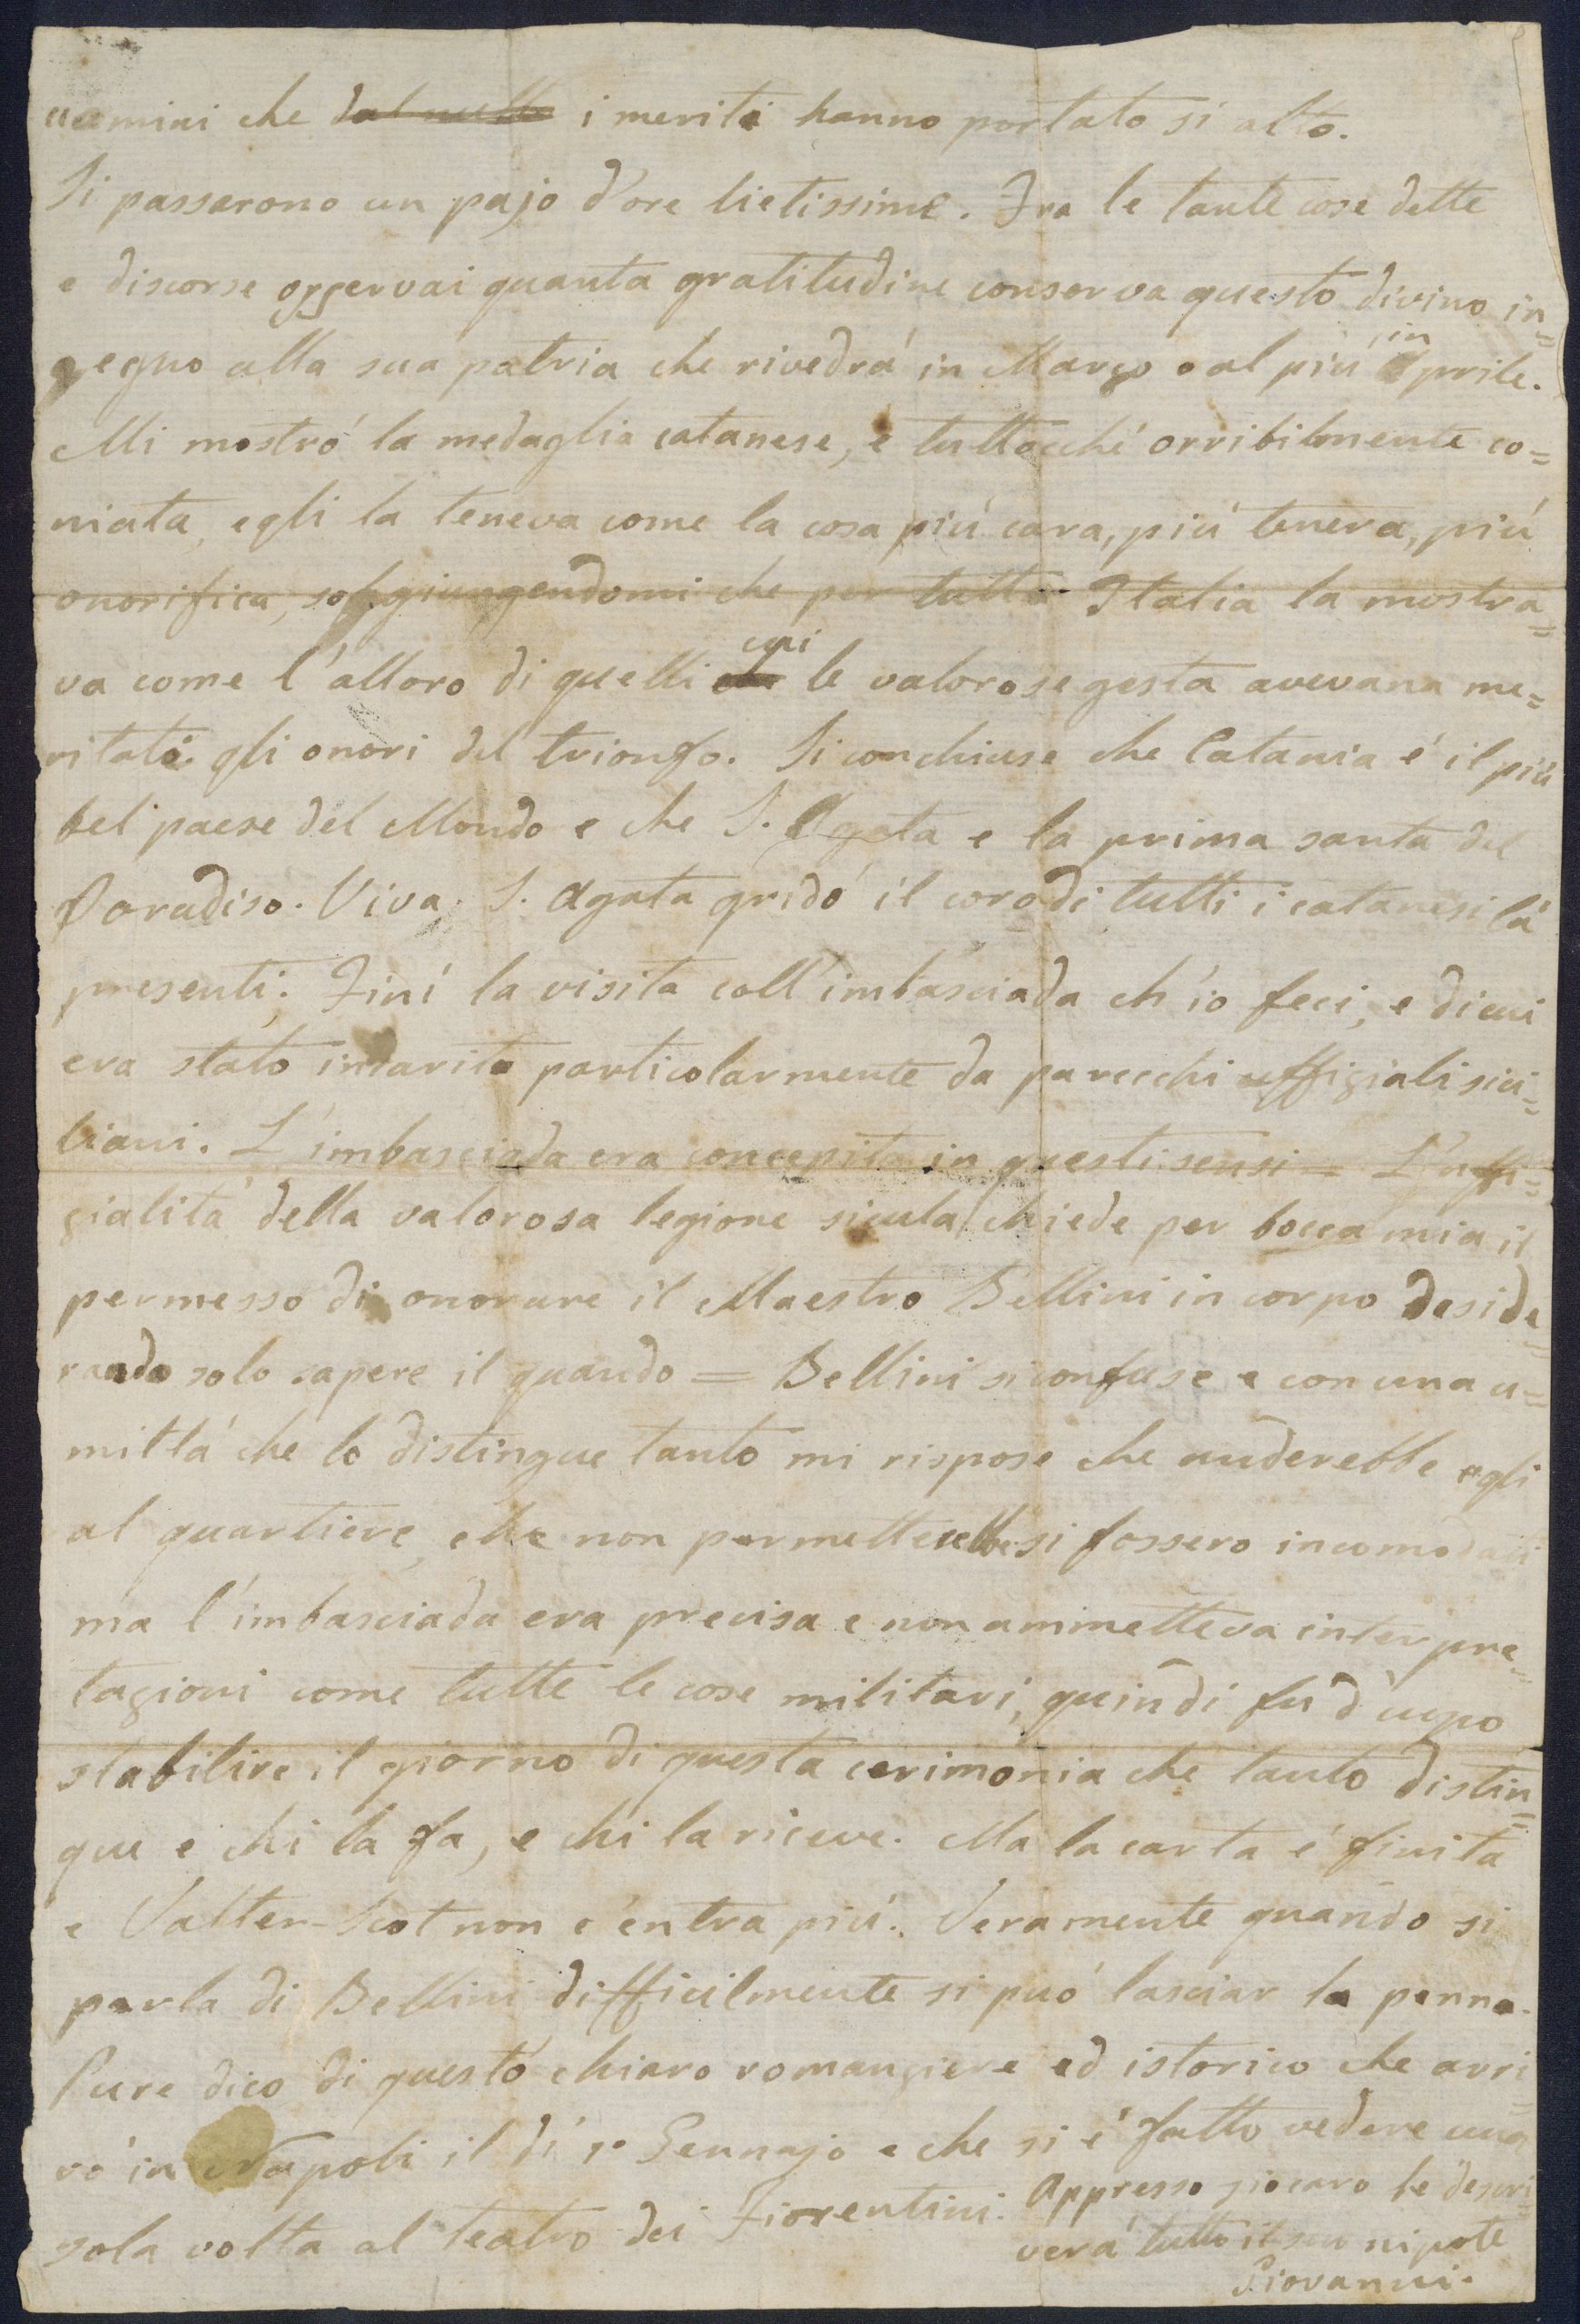 uomini che dal nulla i meriti hanno portato sí alto.
Si passarono un pajo d'ore lietissime. Fra le tante cose dette
e discorse osservai quanta gratitudine conserva questo divino in=
gegno alla sua patria che rivedrá in Marzo o al piú in Aprile.
Mi mostró la medaglia catanese, e tuttocché orribilmente co=
niata, egli la teneva come la cosa piú cara, piú tenera, piú
onorifica, soggiungendomi che per tutta Italia la mostra=
va come l'alloro di quelli cui le valorose gesta avevana me=
ritati gli onori del trionfo. Si conchiuse che Catania é il piú
bel paese del Mondo e che S. Agata e la prima santa del
Paradiso. Viva S. Agata gridó il coro di tutti i catanesi lá
presenti. Finí la visita coll'imbasciada ch'io feci, e di cui
era stato incarito particolarmente da parecchi uffiziali sici=
liani. L'imbasciada era concepita in questi sensi = L'uffi=
zialitá della valorosa legione sicula chiede per bocca mia il
permesso di onorare il Maestro Bellini in corpo deside=
rando solo sapere il quando = Bellini si confuse e con una u=
miltá che lo distingue tanto mi rispose che anderebbe egli
al quartiere, che non permetterebbe si fossero incomodati
ma l'imbasciada era precisa e non ammetteva interpre=
tazioni come tutte le cose militari, quindi fu d'uopo
stabilire il giorno di questa cerimonia che tanto distin=
gue e chi la fa, e chi la riceve. Ma la carta é finita
e Valter-Scot non c'entra piú. Veramente quando si
parla di Bellini difficilmente si puó lasciar la penna.
Pure dico di questo chiaro romanziere ed istorico che arri=
vó in Napoli il dí 1º Gennajo e che si é fatto vedere una
sola volta al teatro dei Fiorentini. Appresso zio caro le descri=
verá tutto il suo nipote
Giovanni.